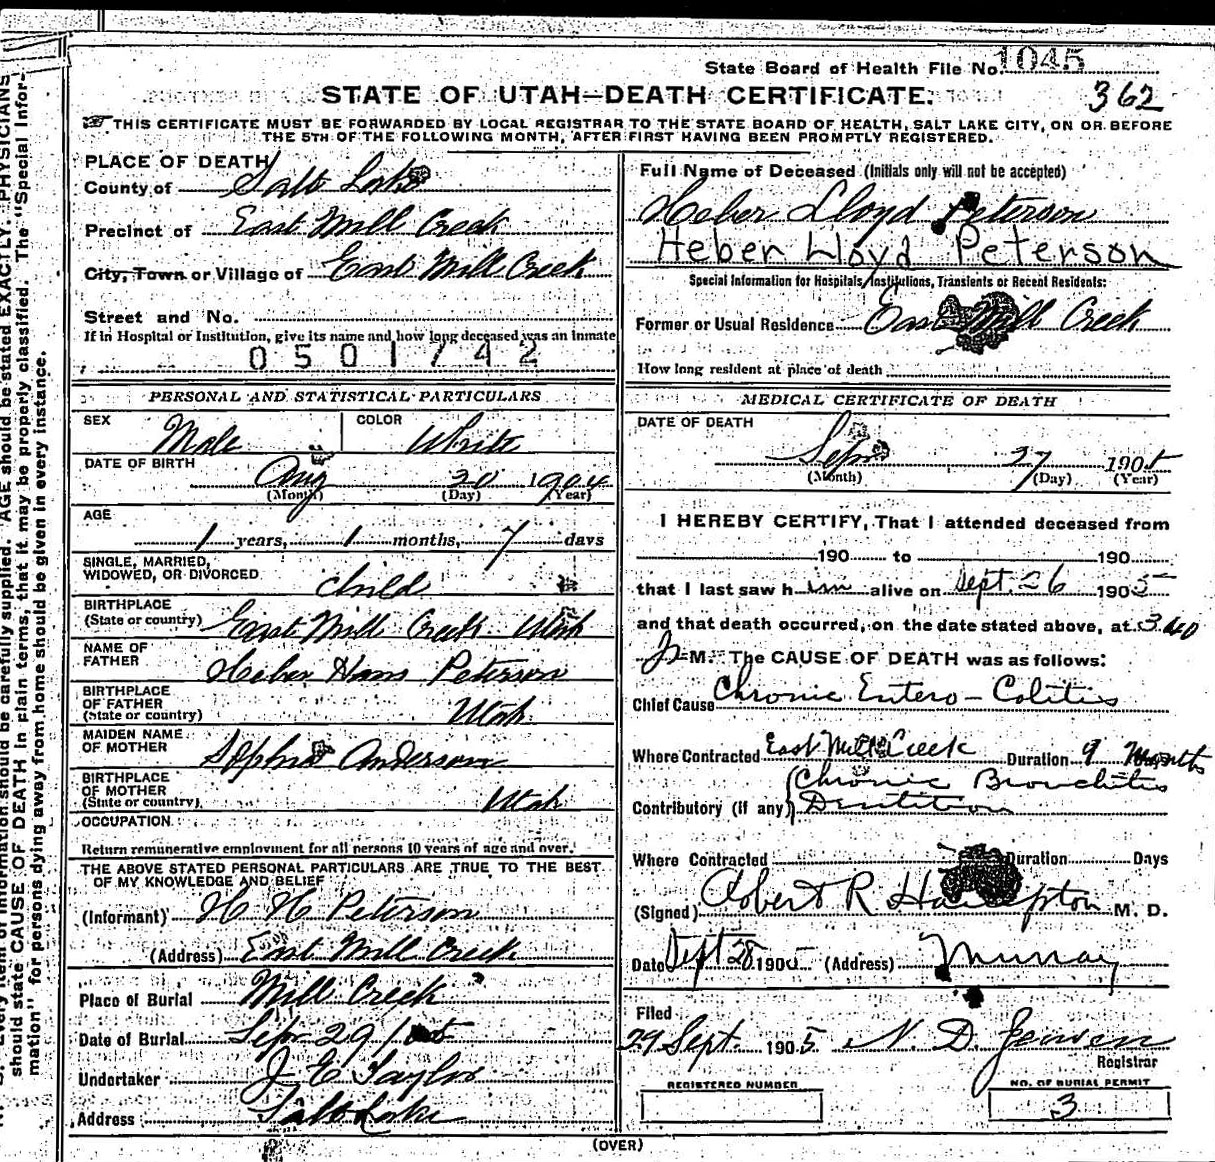 State Board of Health File No. 1045
362
STATE OF UTAH—DEATH CERTIFICATE.
THIS CERTIFICATE MUST BE FORWARDED BY LOCAL REGISTRAR TO THE STATE BOARD OF HEALTH, SALT LAKE CITY, ON OR BEFORE
THE 5TH OF THE FOLLOWING MONTH, AFTER FIRST HAVING BEEN PROMPTLY REGISTERED.
PLACE OF DEATH
County of Salt Lake
Precinct of East Mill Creek
City, Town or Village of East Mill Creek
Street and No.
If in Hospital or Institution, give its name and how long deceased was an inmate
0501742
PERSONAL AND STATISTICAL PARTICULARS
SEX Male COLOR White
DATE OF BIRTH
Aug 20 1904
(Month) (Day) (Year)
AGE
1 years, 1 months, 7 days
SINGLE, MARRIED,
WIDOWED, OR DIVORCED child
BIRTHPLACE
(State or country) East Mill Creek Utah
NAME OF
FATHER Heber Hans Peterson
BIRTHPLACE
OF FATHER
(State or country) Utah
MAIDEN NAME
OF MOTHER Sophia Anderson
BIRTHPLACE
OF MOTHER
(State or country) Utah
OCCUPATION
Return remunerative employment for all persons 10 years of age and over.
THE ABOVE STATED PERSONAL PARTICULARS ARE TRUE TO THE BEST
OF MY KNOWLEDGE AND BELIEF
(Informant) H H Peterson
(Address) East Mill Creek
Place of Burial Mill Creek
Date of Burial Sep 29 1905
Undertaker J E Taylor
Address Salt Lake
Full Name of Deceased (Initials only will not be accepted)
Heber Lloyd Peterson
Heber Lloyd Peterson
Special Information for Hospitals, Institutions, Transients or Recent Residents:
Former or Usual Residence East Mill Creek
How long resident at place of death
MEDICAL CERTIFICATE OF DEATH
DATE OF DEATH
Sep 27 1905
(Month) (Day) (Year)
I HEREBY CERTIFY, That I attended deceased from
190 to 190
that I last saw h im alive on Sept. 26 1905
and that death occurred, on the date stated above, at 3.40
M. The CAUSE OF DEATH was as follows:
Chief Cause Chronic Entero-Colitis
Where Contracted East Mill Creek Duration 9 Months
Chronic Bronchitis
Contributory (if any) Dentition
Where Contracted Duration Days
(Signed) Robert R Hampton M. D.
Date Sept 28 1905 (Address) Murray
Filed
29 Sept. 1905 N. D. Jensen
Registrar
REGISTERED NUMBER
NO. OF BURIAL PERMIT
3
(OVER)
AGE should be stated EXACTLY. PHYSICIANS
should state CAUSE OF DEATH in plain terms, that it may be properly classified. The "Special Infor-
mation" for persons dying away from home should be given in every instance.